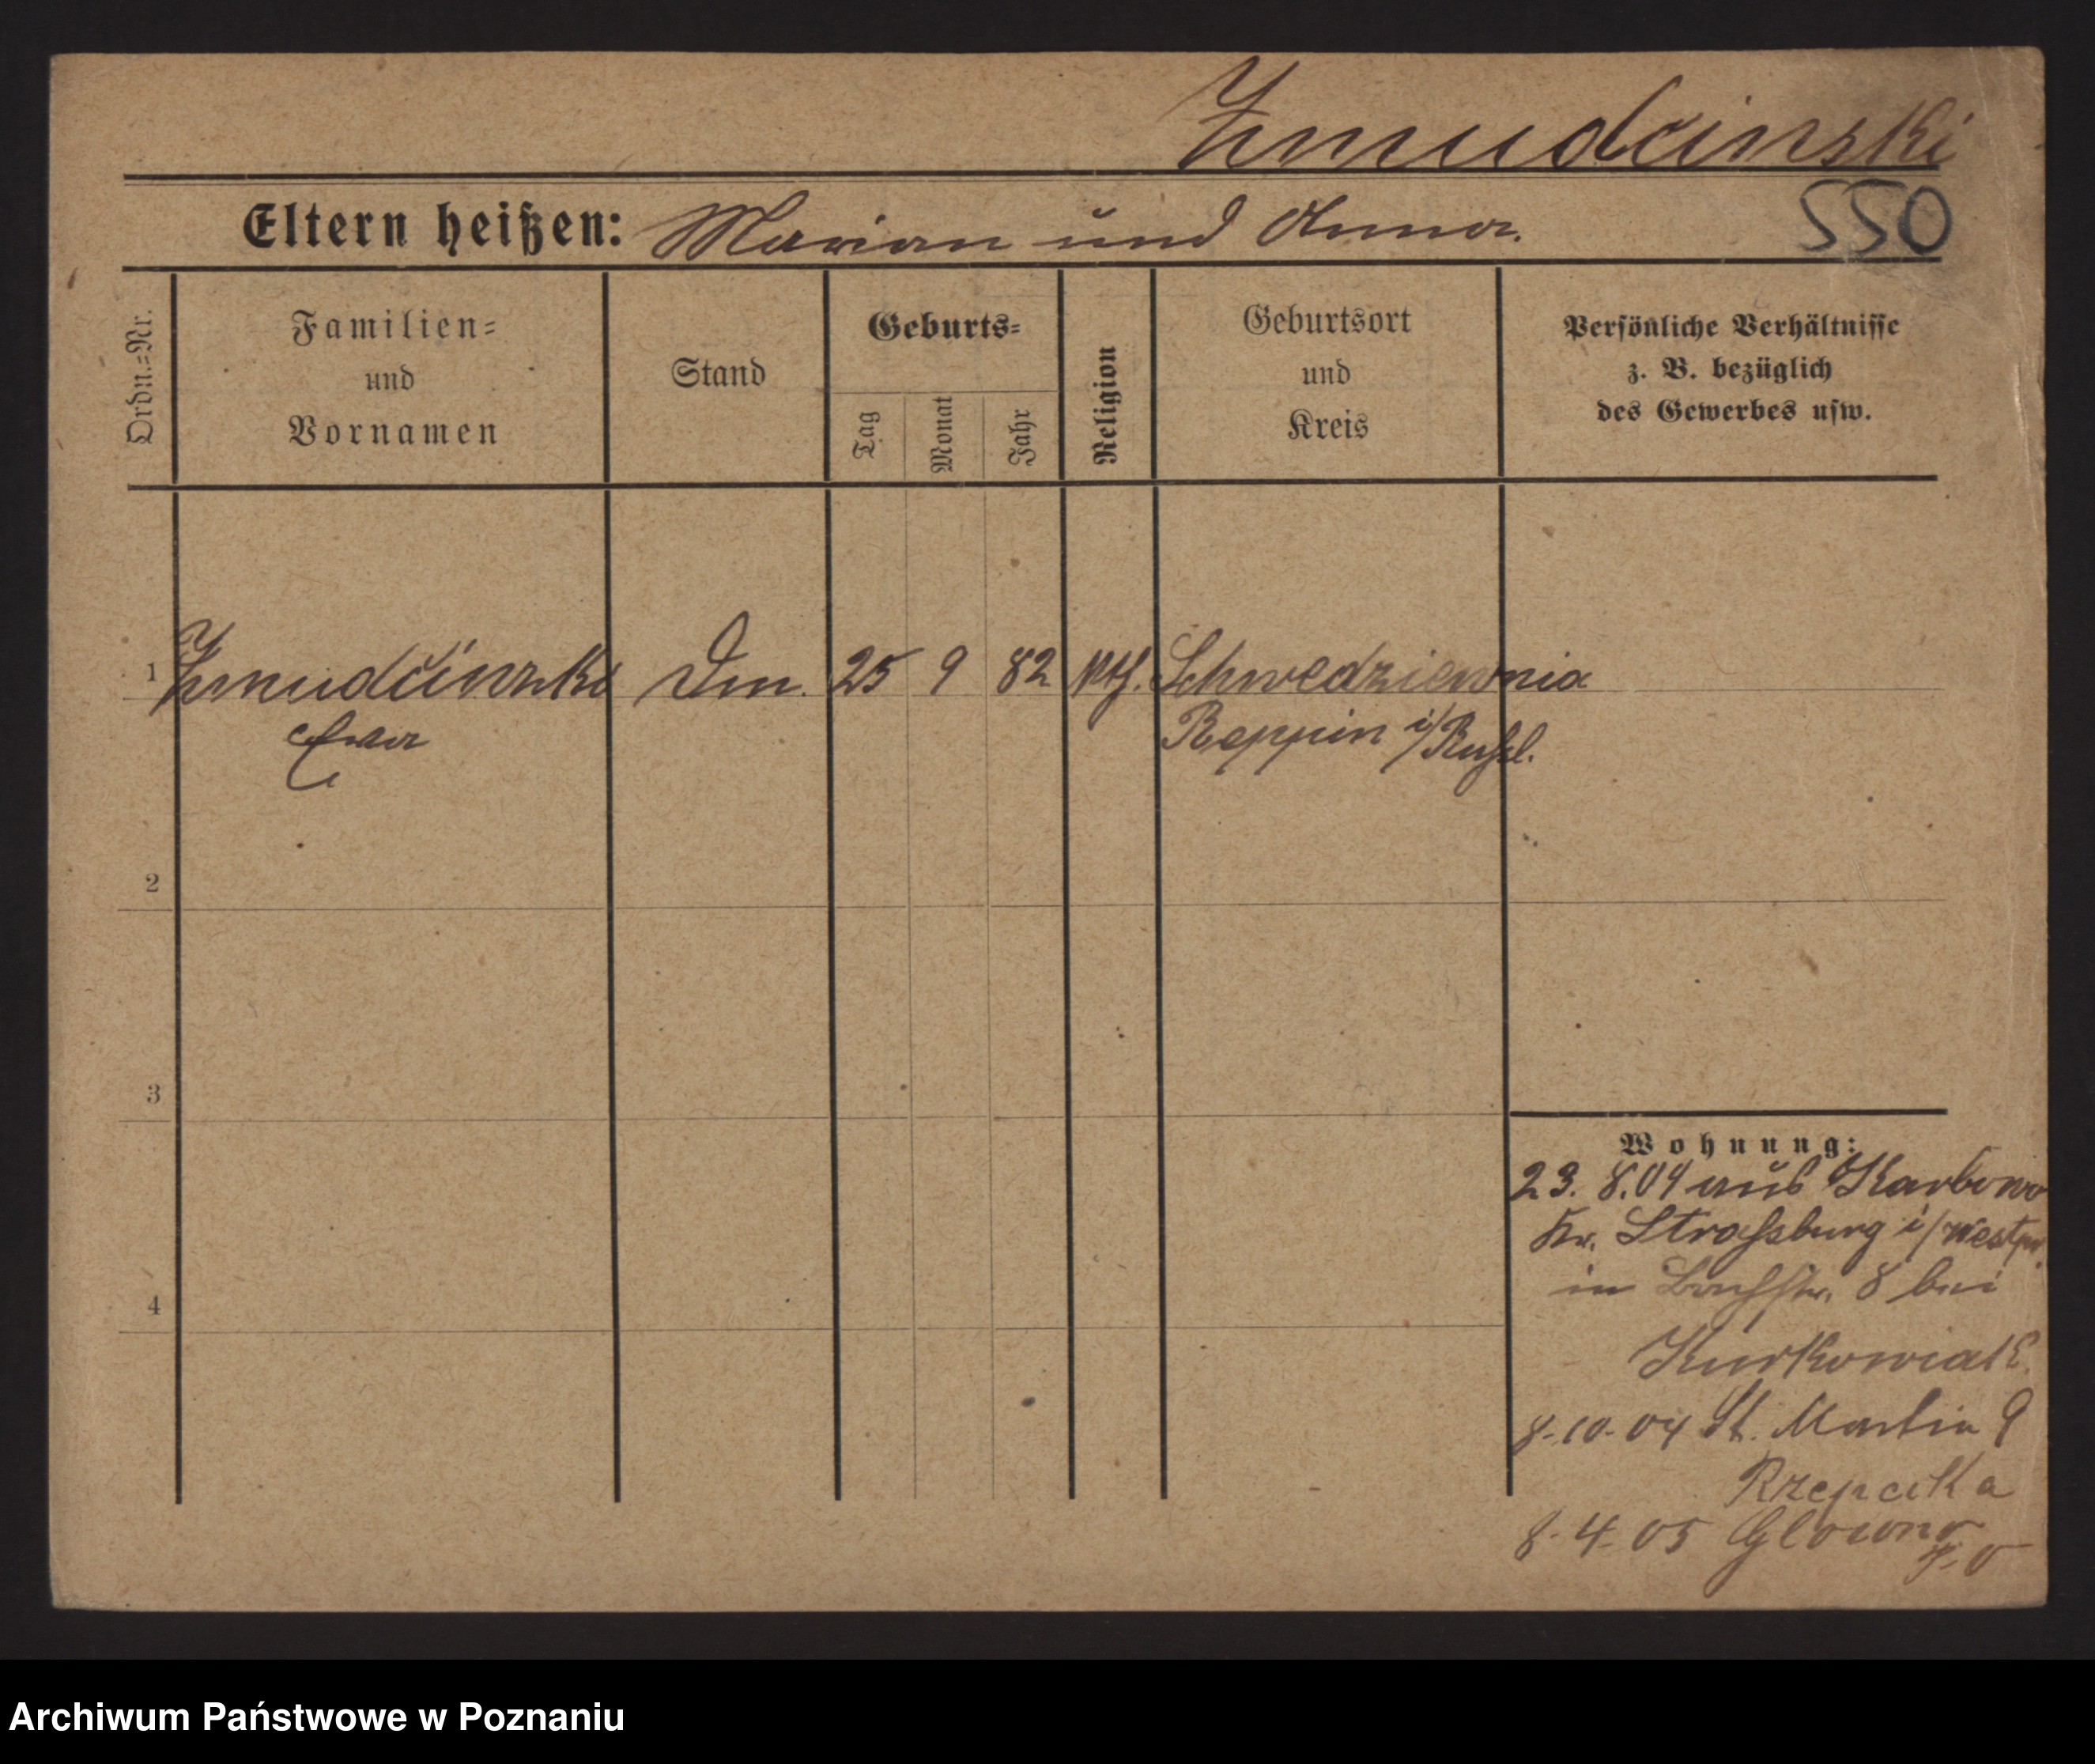 Zmudcinski
Eltern heißen: Marian und Anna.
550
Ordn.=Nr.
Familien=
und
Vornamen
Stand
Geburts=
Tag
Monat
Jahr
Religion
Geburtsort
und
Kreis
Persönliche Verhältnisse
z. B. bezüglich
des Gewerbes usw.
1 Zmudcinski Dm. 25 9 82 kth. Schwedziewnia
Ewa Reppin i/Rußl.
2
3
4
Wohnung:
23. 8.04 aus Karbowo
Kr. Straßburg i/Westpr.
in Bachstr. 8 bei
Kurkowiak.
8-10-04 St. Martin 9
Rzepcika
8-4-05 Glowno
Archiwum Państwowe w Poznaniu